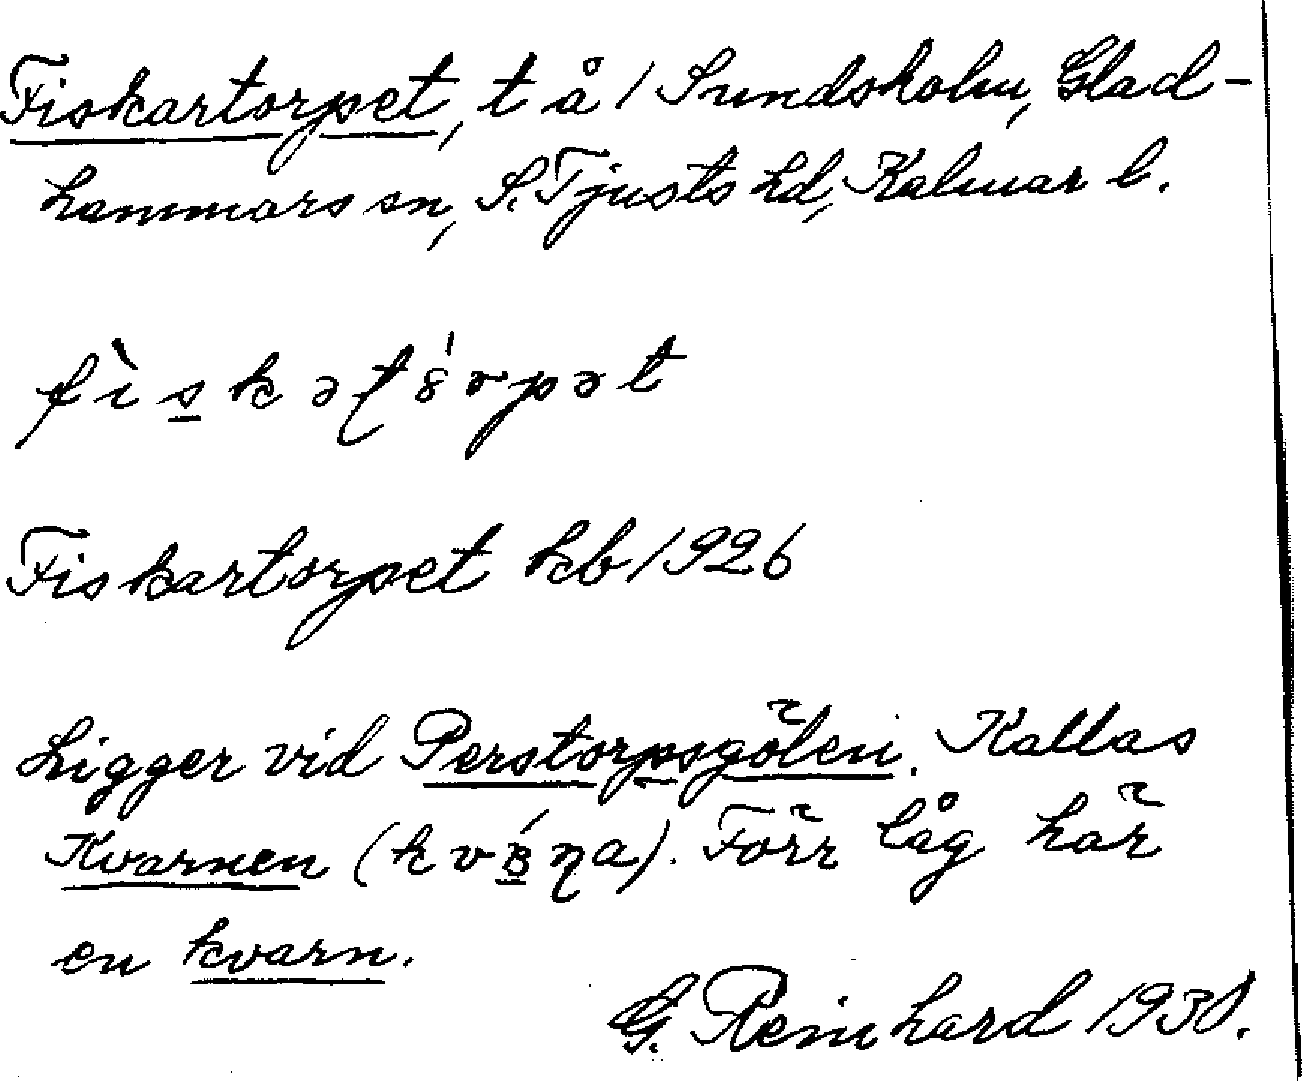 Fiskartorpet, t å 1 Sundsholm, Glad-
hammars sn, S. Tjusts hd, Kalmar l.
fìskəʈ8́rpət
Fiskartorpet kb 1926
Ligger vid Perstorpsgölen. Kallas
Kvarnen (kvɞ́ɳa). Förr låg här
en kvarn.
G. Reinhard 1930.